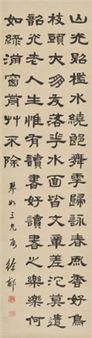 山光照檻水繞廊舞雩歸詠春風香好鳥
枝頭亦朋友落花水面皆文章蹉跎莫遣
韶光老人生惟有讀書好讀書之樂樂何
如綠滿窗前草不除
三兄 徐郙